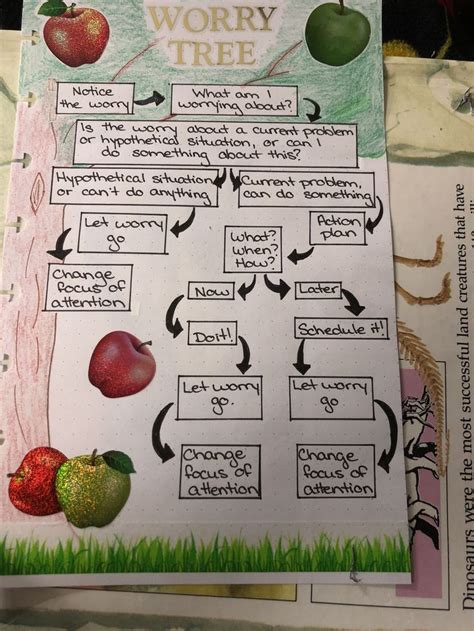 WORRY
TREE
Notice
the worry
What am I
worrying about?
Is the worry about a current problem
or hypothetical situation, or can I
do something about this?
Hypothetical situation
or can't do anything
Current problem,
can do something
Let worry
go
Change
focus of
attention
Action
plan
What?
When?
How?
Now
Later
Do it!
Schedule it!
Let worry
go.
Let worry
go
Change
focus of
attention
Change
focus of
attention
Dinosaurs were the most successful land creatures that have